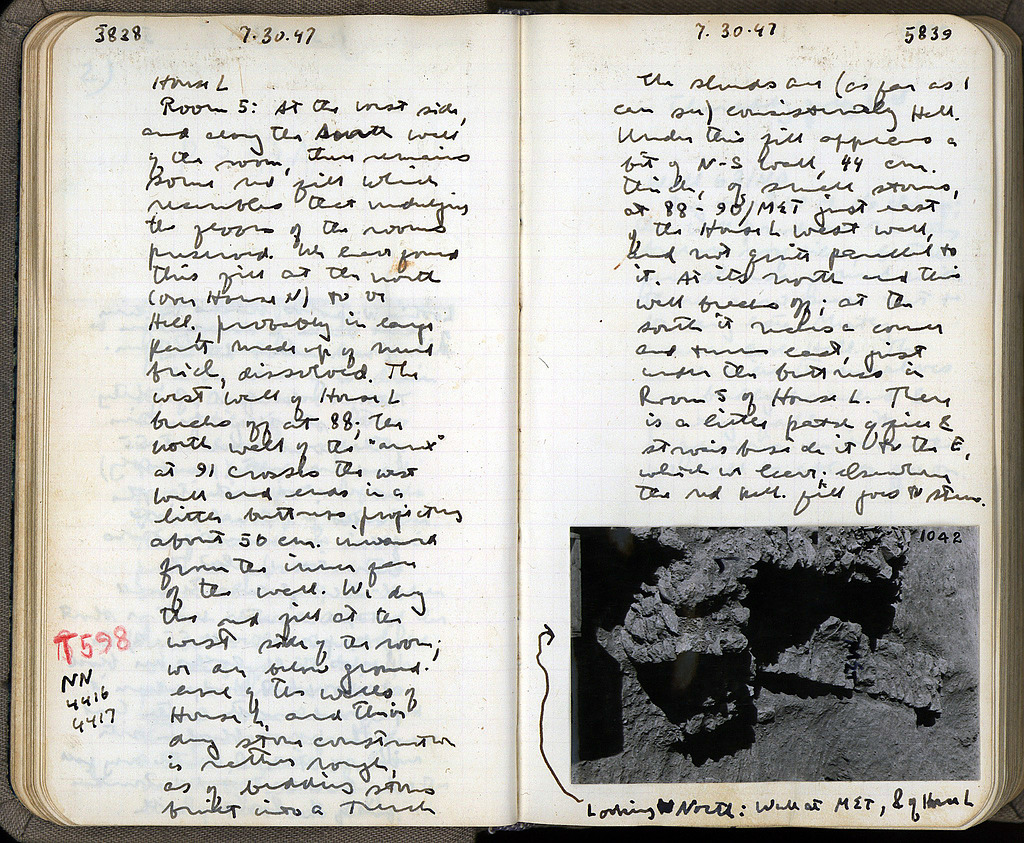 3838
7.30.47
House L
Room 5: At the west side,
and along the south wall
of the room, there remains
some red fill which
resembles that underlying
the floors of the rooms
preserved. We have found
this fill at the north
(over House N) to be
Hell. probably in large
part made up of mud
brick, dissolved. The
west wall of House L
breaks off at 88; the
north wall of the "annex"
at 91 crosses the west
wall and ends in a
little buttress projecting
about 50 cm. inward
from the inner face
of the wall. We dug
the red fill at the
west side of the room;
we are below ground
level of the walls of
House L, and their
stone construction
is rather rough,
as of bedding stones
built into a trench
T598
NN
4416
4417
7.30.47
5839
The sherds are (as far as I
can see) consistently Hell.
Under this fill appears a
bit of N-S wall, 44 cm.
thick, of small stones,
at 88-90/MET just east
of the House L west wall,
and not quite parallel to
it. At its north end this
wall breaks off; at the
south it makes a corner
and turns east, just
under the buttress in
Room 5 of House L. There
is a little patch of fine
beside it to the E,
which we leave; elsewhere
the red Hell. fill goes to
1042
Looking North: Wall at MET, 8 of House L